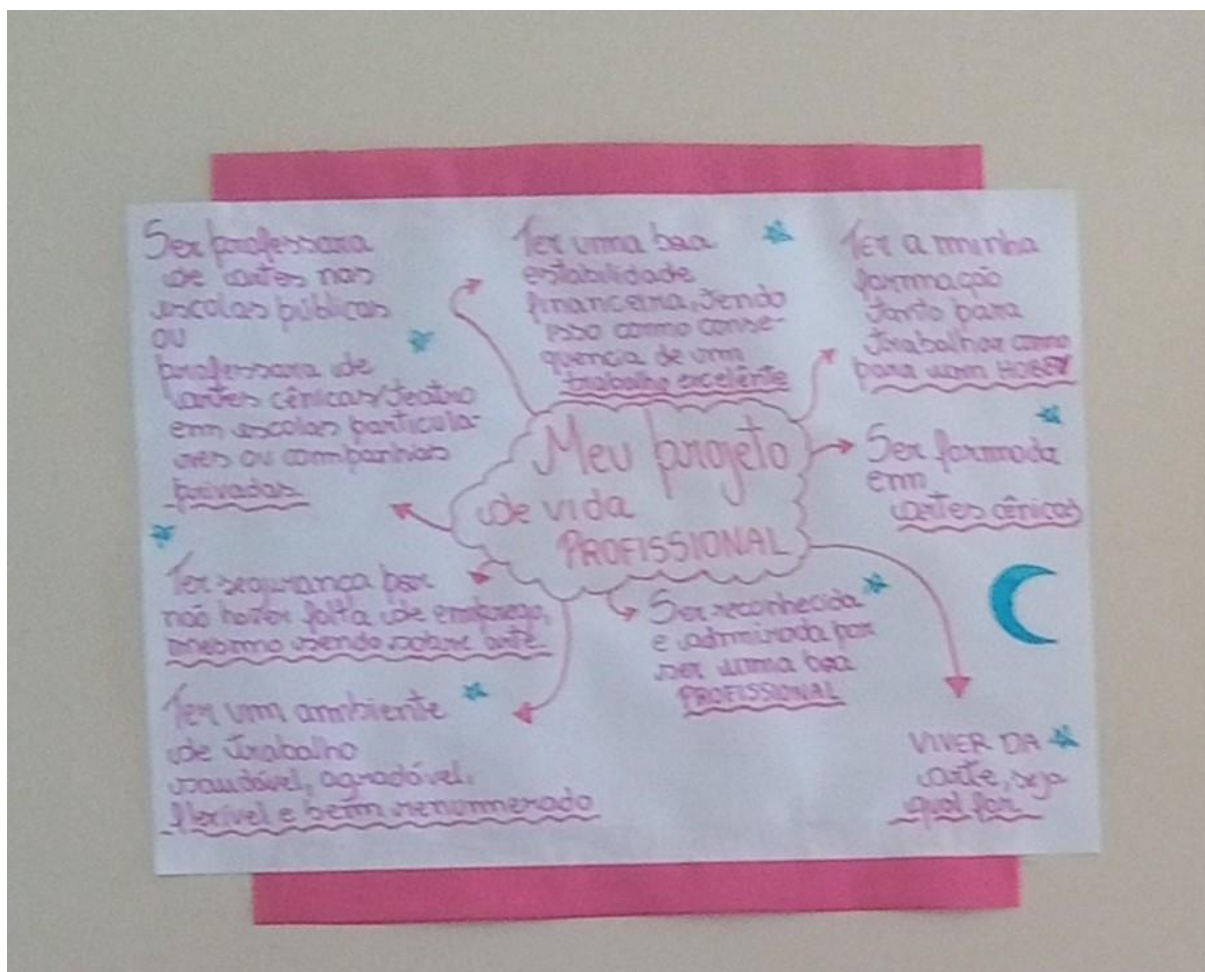 Ser professora
de artes nas
escolas públicas
ou
professora de
artes cênicas/teatro
em escolas particula-
res ou companhias
privadas
Ter uma boa
estabilidade
financeira, tendo
isso como conse-
quencia de um
trabalho excelênte
Ter a minha
formação
tanto para
trabalhar como
para um HOBBY
Meu projeto
de vida
PROFISSIONAL
Ser formada
em
artes cênicas
Ter segurança por
não haver falta de emprego,
mesmo sendo sobre arte
Ser reconhecida
e admirada por
ser uma boa
PROFISSIONAL
Ter um ambiente
de trabalho
saudável, agradável,
flexível e bem renumerado
VIVER DA
arte, seja
qual for